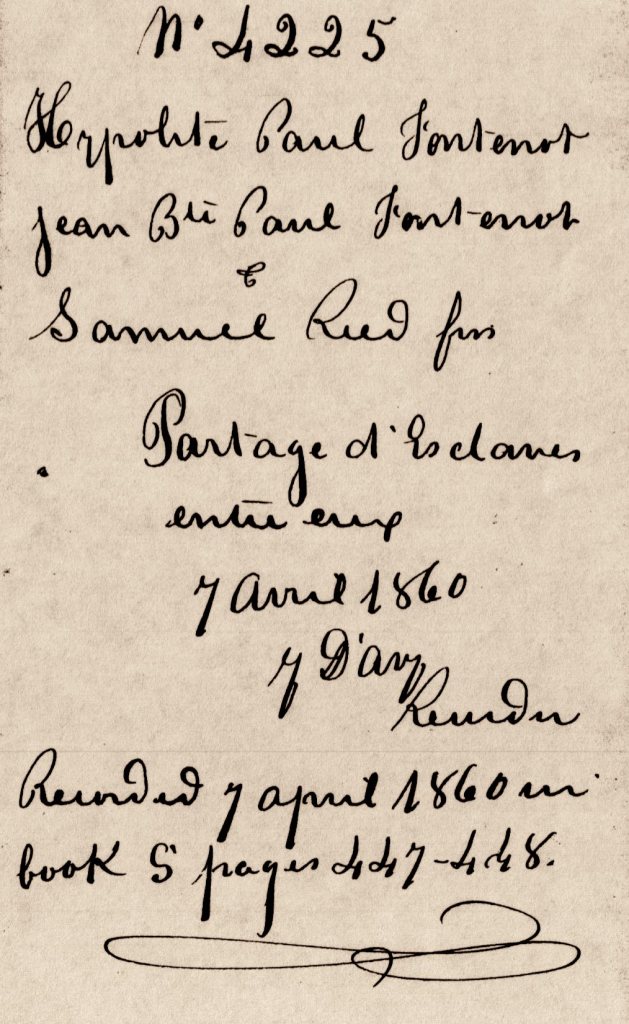 N° 4225
Hypolite Paul Fontenot
Jean Bte Paul Fontenot
&
Samuel Reed fils
Partage d'Esclaves
entre eux
7 Avril 1860
D'avy
Recorder
Recorded 7 april 1860 in
book S pages 447-448.